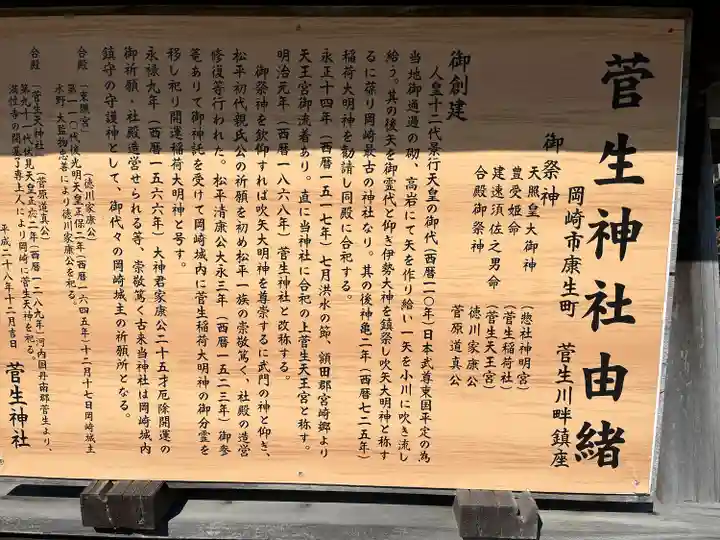 菅生神社由緒
岡崎市康生町　菅生川畔鎮座
御祭神
天照皇大御神　(惣社神明宮)
豊受姫命　(菅生稲荷社)
建速須佐之男命　(菅生天王宮)
合殿御祭神　徳川家康公
菅原道真公
御創建
人皇十二代景行天皇の御代(西暦一一〇年)日本武尊東国平定の為
当地御通過の砌、高岩にて矢を作り給い一矢を小川に吹き流し
給う。其の後矢を御霊代と仰ぎ伊勢大神を鎮祭し吹矢大明神と称す
るに蓱り岡崎最古の神社なり。其の後神亀二年(西暦七二五年)
稲荷大明神を勧請し同殿に合祀す。
永正十四年(西暦一五一七年)七月洪水の節、額田郡宮崎郷より
天王宮御流着あり。直に当神社に合祀の上菅生天王宮と称す。
明治元年(西暦一八六八年)菅生神社と改称する。
御祭神を欽仰すれば吹矢大明神を尊崇するに武門の神と仰ぎ、
松平初代親氏公の祈願を初め松平一族の崇敬篤く、社殿の造営
修復等行われた。松平清康公大永三年(西暦一五二三年)御参
篭ありて御神託を受けて岡崎城内に菅生稲荷大明神の御分霊を
移し祀り開運稲荷大明神と号す。
永禄九年(西暦一五六六年)大神君家康公二十五才厄除開運の
御祈願・社殿造営せられる等、崇敬篤く古来当神社は岡崎城内
鎮守の守護神として、御代々の岡崎城主の祈願所となる。
合殿　「東照宮」(徳川家康公)
第一一〇代後光明天皇正保二年(西暦一六四五年)十二月十七日岡崎城主
水野大監物忠善により徳川家康公を祀る。
合殿　「菅生天神社」(菅原道真公)
第九十一代伏見天皇正応二年(西暦一二八九年)河内国丹南郡菅生より、
満性寺の開基了専上人により岡崎に菅生天神を祀る。
平成二十八年十二月吉日　菅生神社